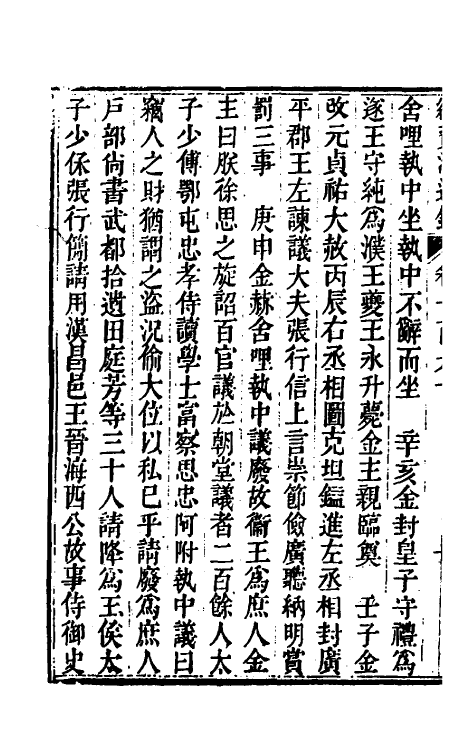 舍哩執中坐執中不辭而坐　辛亥金封皇子守禮爲
遂王守純爲濮王夔王永升薨金主親臨奠　壬子金
改元貞祐大赦丙辰右丞相圖克坦鎰進左丞相封廣
平郡王左諫議大夫張行信上言崇節儉廣聽納明賞
罰三事　庚申金赫舍哩執中議廢故衞王爲庶人金
主曰朕徐思之旋詔百官議於朝堂議者二百餘人太
子少傅鄂屯忠孝侍讀學士富察思忠阿附執中議曰
竊人之財猶謂之盜況偷大位以私已乎請廢爲庶人
戸部尙書武都拾遺田庭芳等三十人請降爲王侯太
子少保張行簡請用漢昌邑王晉海西公故事侍御史